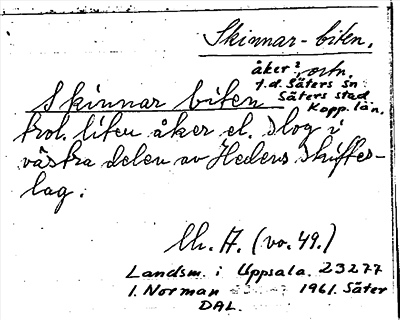 Skinnar-biten.
åker?, ortn.
f.d. Säters sn
Säters stad
Kopp. län.
Skinnar biten
trol. liten åker el. slog i
västra delen av Hedens skiftes-
lag.
Uh. A. (vo. 49.)
Landsm. i Uppsala. 23277
1. Norman 1961. Säter
DAL.